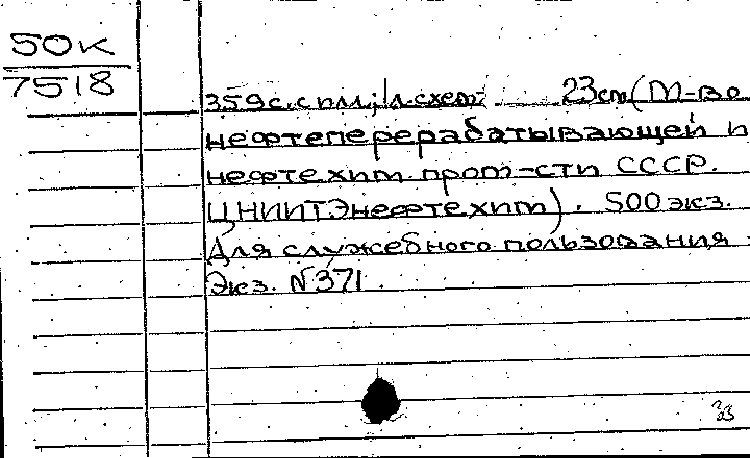 50К
7518
359с. с илл; 1л. схем 23см (М-во
нефтеперерабатывающей и
нефтехим. пром-сти СССР.
ЦНИИТЭнефтехим). 500 экз.
Для служебного пользования
Экз. N 371.
33